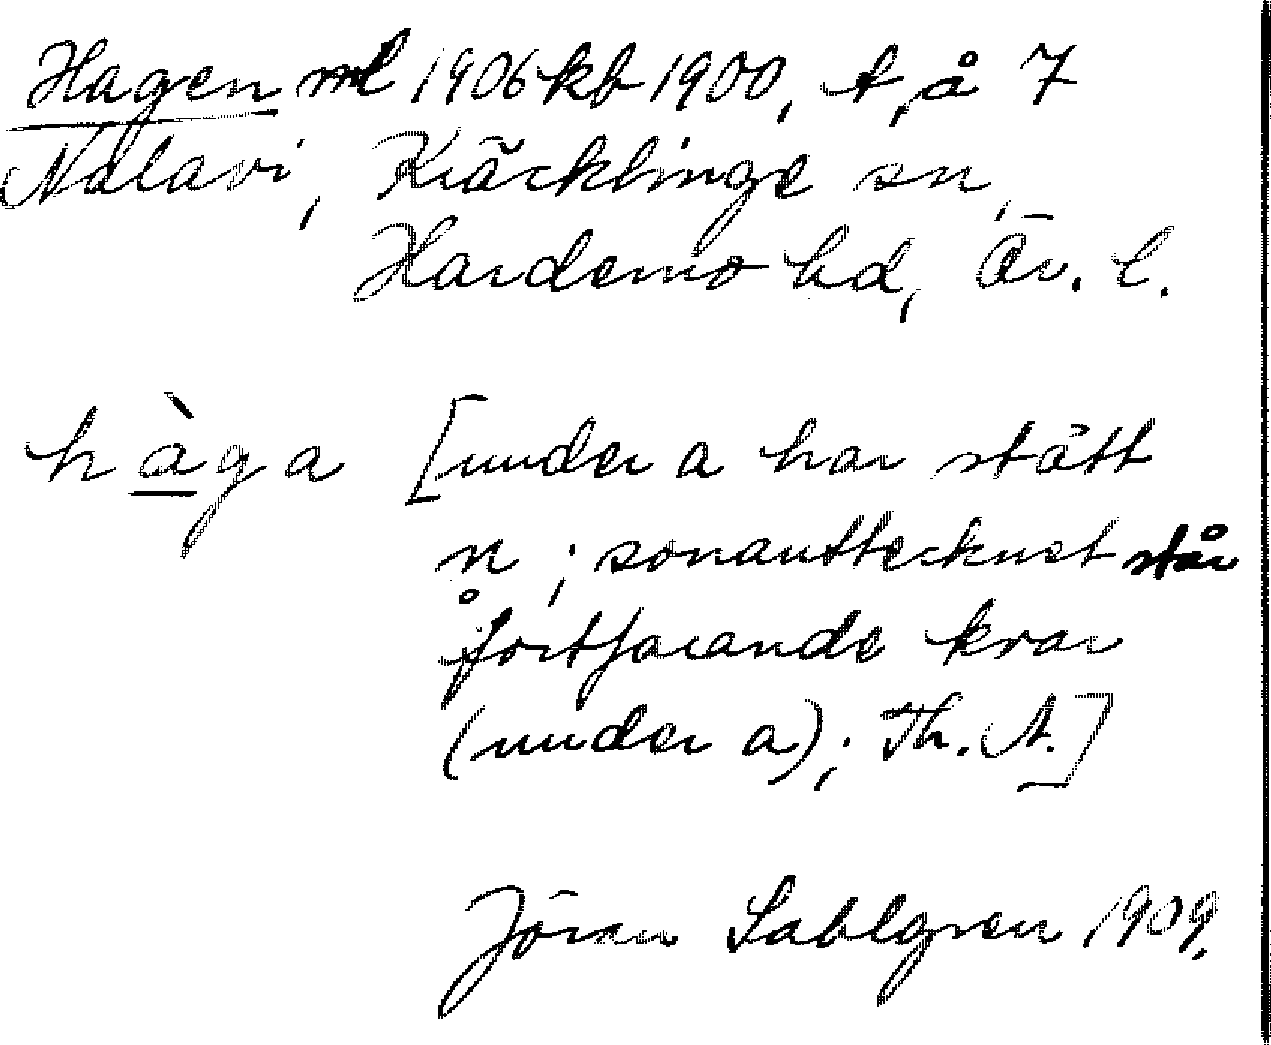 Hagen ml 1906 kb 1900, t, å 7
Nalavi, Kräcklinge sn,
Hardemo hd, Ör. l.
hàga [under a har stått
n̥; sonanttecknet står
fortfarande kvar
(under a); Th. A.]
Jöran Sahlgren 1909.